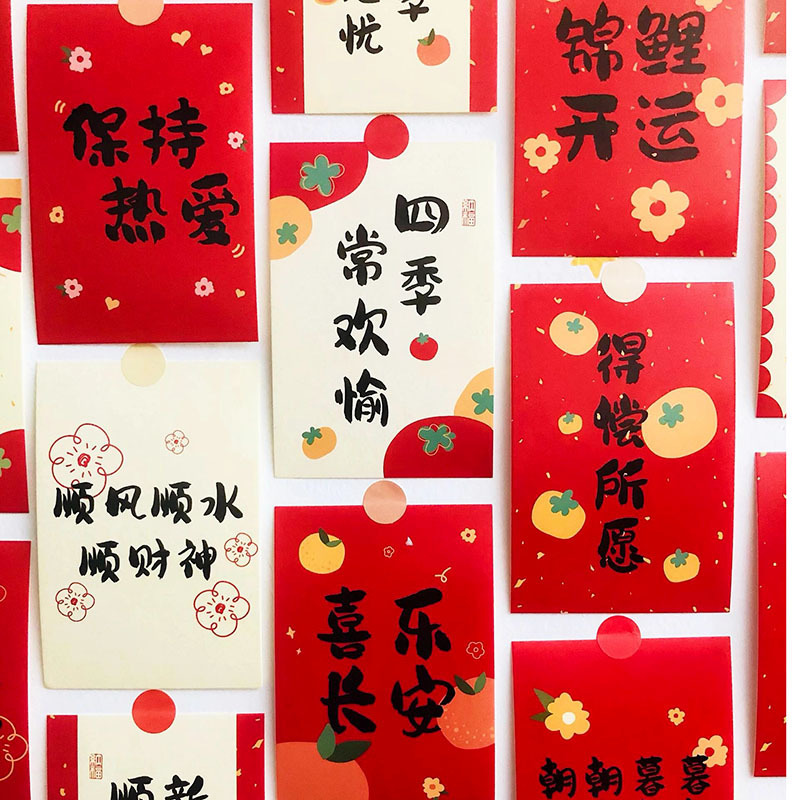 保持
热爱
忧
锦鲤
开运
四季
常欢愉
得偿所愿
顺风顺水
顺财神
喜乐
长安
朝朝暮暮
新
顺